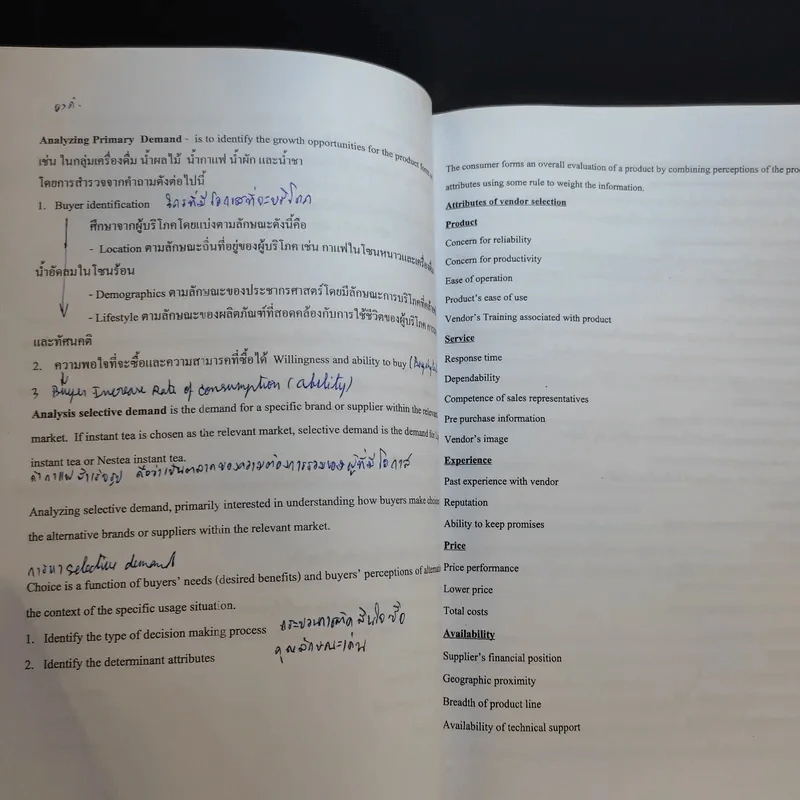 Analyzing Primary Demand - is to identify the growth opportunities for the product form
เช่น ในกลุ่มเครื่องดื่ม น้ำผลไม้ น้ำกาแฟ น้ำผัก และน้ำชา
โดยการสำรวจจากคำถามดังต่อไปนี้
1. Buyer identification ใครที่มีโอกาสที่จะบริโภค
ศึกษาจากผู้บริโภคโดยแบ่งตามลักษณะดังนี้คือ
- Location ตามลักษณะถิ่นที่อยู่ของผู้บริโภค เช่น กาแฟในโซนหนาวและเครื่องดื่ม
น้ำอัดลมในโซนร้อน
- Demographics ตามลักษณะของประชากรศาสตร์โดยมีลักษณะการบริโภคที่
- Lifestyle ตามลักษณะของผลิตภัณฑ์ที่สอดคล้องกับการใช้ชีวิตของผู้บริโภค
และทัศนคติ
2. ความพอใจที่จะซื้อและความสามารคที่ซื้อได้ Willingness and ability to buy
3 Buyer Increase Rate of consumption (ability)
Analysis selective demand is the demand for a specific brand or supplier within the
market. If instant tea is chosen as the relevant market, selective demand is the demand for
instant tea or Nestea instant tea.
ถ้ากาแฟสำเร็จรูป ถือว่าเป็นตลาดของความต้องการรวมของผู้ที่มีโอกาส
Analyzing selective demand, primarily interested in understanding how buyers make
the alternative brands or suppliers within the relevant market.
การหา selective demand
Choice is a function of buyers' needs (desired benefits) and buyers' perceptions of
the context of the specific usage situation.
1. Identify the type of decision making process กระบวนการตัดสินใจซื้อ
2. Identify the determinant attributes คุณลักษณะเด่น
The consumer forms an overall evaluation of a product by combining perceptions of the
attributes using some rule to weight the information.
Attributes of vendor selection
Product
Concern for reliability
Concern for productivity
Ease of operation
Product's ease of use
Vendor's Training associated with product
Service
Response time
Dependability
Competence of sales representatives
Pre purchase information
Vendor's image
Experience
Past experience with vendor
Reputation
Ability to keep promises
Price
Price performance
Lower price
Total costs
Availability
Supplier's financial position
Geographic proximity
Breadth of product line
Availability of technical support